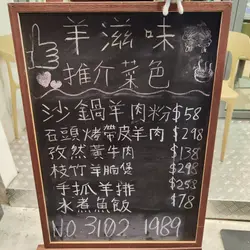 羊滋味
推介菜色
沙鍋羊肉粉$58
石頭烤帶皮羊肉$298
孜然黃牛肉$138
枝竹羊腩煲$298
手抓羊排$253
水煮魚飯$78
NO.3102 1989